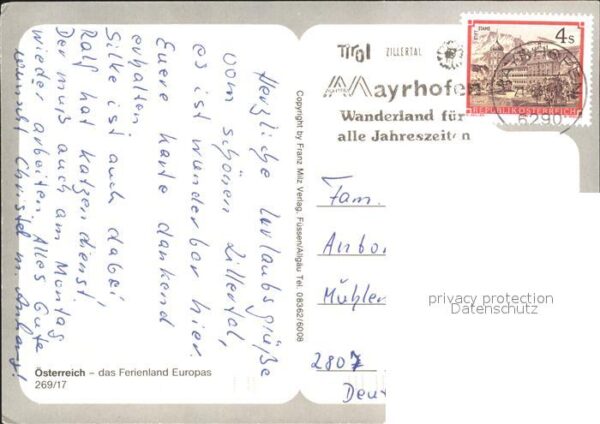 Herzliche Urlaubsgrüße
vom schönen Zillertal,
es ist wunderbar hier.
Euere Karte dankend
erhalten
Silke ist auch dabei,
Ralf hat Katzendienst,
Der muß auch am Montag
wieder arbeiten. Alles Gute
wünscht Christel m.
Österreich – das Ferienland Europas
269/17
Copyright by Franz Milz Verlag, Füssen/Allgäu Tel. 08362/6008
Tirol ZILLERTAL
Mayrhofen
Wanderland für
alle Jahreszeiten
6290
4 S
STIFT STAMS
REPUBLIK ÖSTERREICH
Fam.
Anbo
Mühlen
2807
Deut
privacy protection
Datenschutz